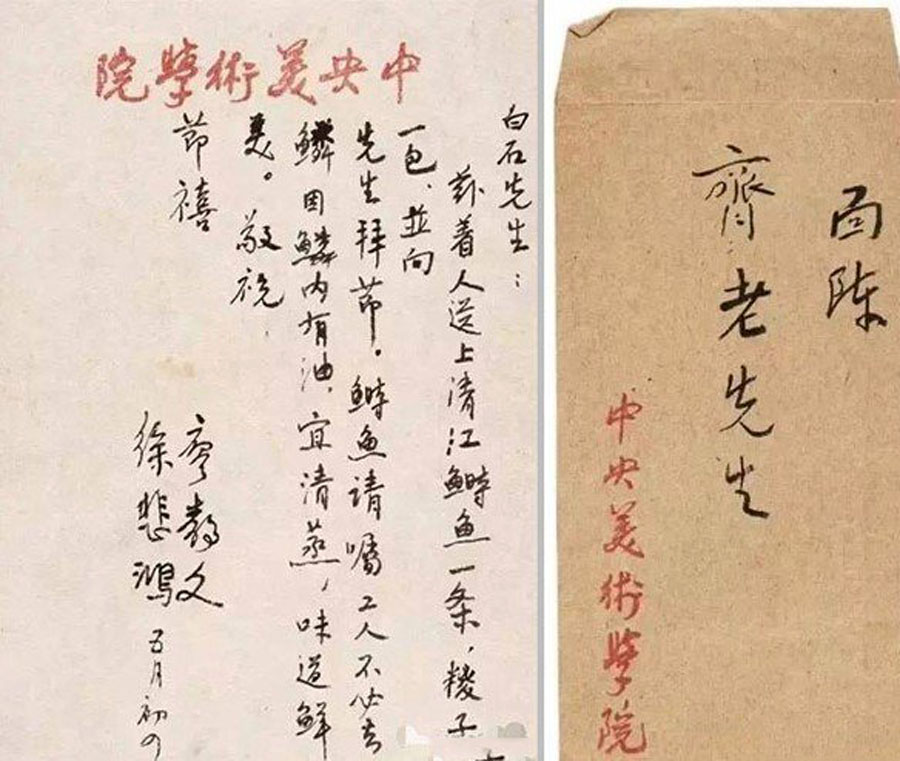 中央美術學院
白石先生：
兹着人送上清江鰣鱼一条，糉子
一包、並向
先生拜節。鰣鱼請嘱工人不必去
鱗因鱗内有油，宜清蒸，味道鮮
美。敬祝
節禧
廖静文
徐悲鴻 五月初四
面陈
齊老先生
中央美術學院